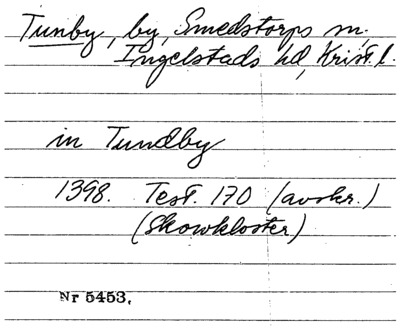 Tunby, by, Smedstorps sn.
Ingelstads hd, Krist. l.
in Tundby
1398. Test. 170 (avskr.)
(Skowkloster)
Nr 5453.